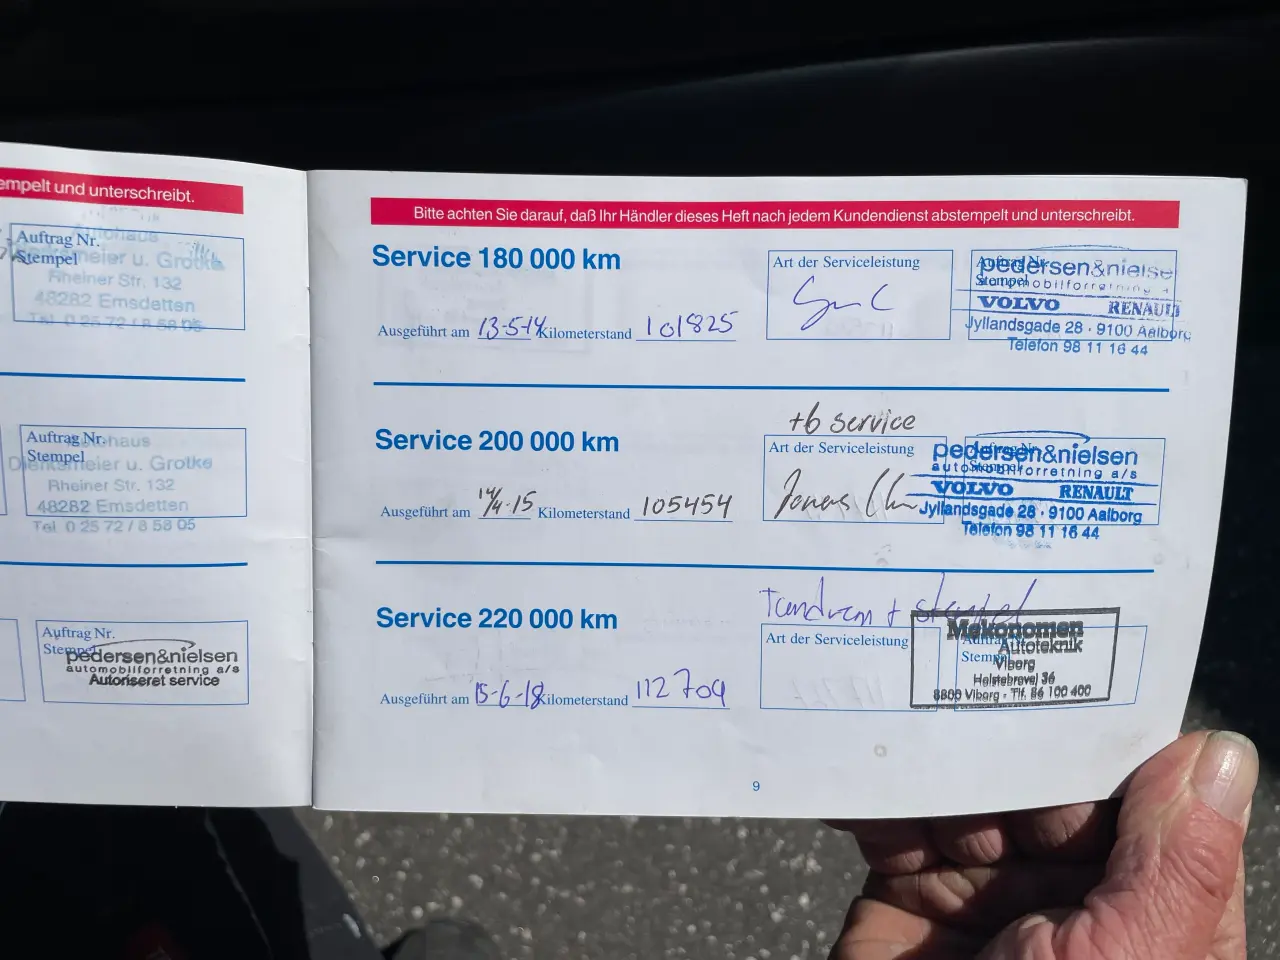 empelt und unterschreibt.
Auftrag Nr.
Stempel
Autohaus
Dierksmeier u. Grotke
Rheiner Str. 132
48282 Emsdetten
Tel. 0 25 72 / 8 58 05
Auftrag Nr.
Stempel
Autohaus
Dierksmeier u. Grotke
Rheiner Str. 132
48282 Emsdetten
Tel. 0 25 72 / 8 58 05
Auftrag Nr.
Stempel
pedersen&nielsen
automobilforretning a/s
Autoriseret service
Bitte achten Sie darauf, daß Ihr Händler dieses Heft nach jedem Kundendienst abstempelt und unterschreibt.
Service 180 000 km
Ausgeführt am 13-5-14 Kilometerstand 101825
Art der Serviceleistung
Auftrag Nr.
Stempel
pedersen&nielse
automobilforretning
VOLVO RENAULT
Jyllandsgade 28 · 9100 Aalborg
Telefon 98 11 16 44
+6 service
Service 200 000 km
Ausgeführt am 14/4-15 Kilometerstand 105454
Art der Serviceleistung
Jonas
Auftrag Nr.
Stempel
pedersen&nielsen
automobilforretning a/s
VOLVO RENAULT
Jyllandsgade 28 · 9100 Aalborg
Telefon 98 11 16 44
Tandrem + stempel
Service 220 000 km
Ausgeführt am 15-6-18 Kilometerstand 112709
Art der Serviceleistung
Auftrag Nr.
Stempel
Mekonomen
Autoteknik
Viborg
Holstebrovej 36
8800 Viborg - Tlf. 86 100 400
9